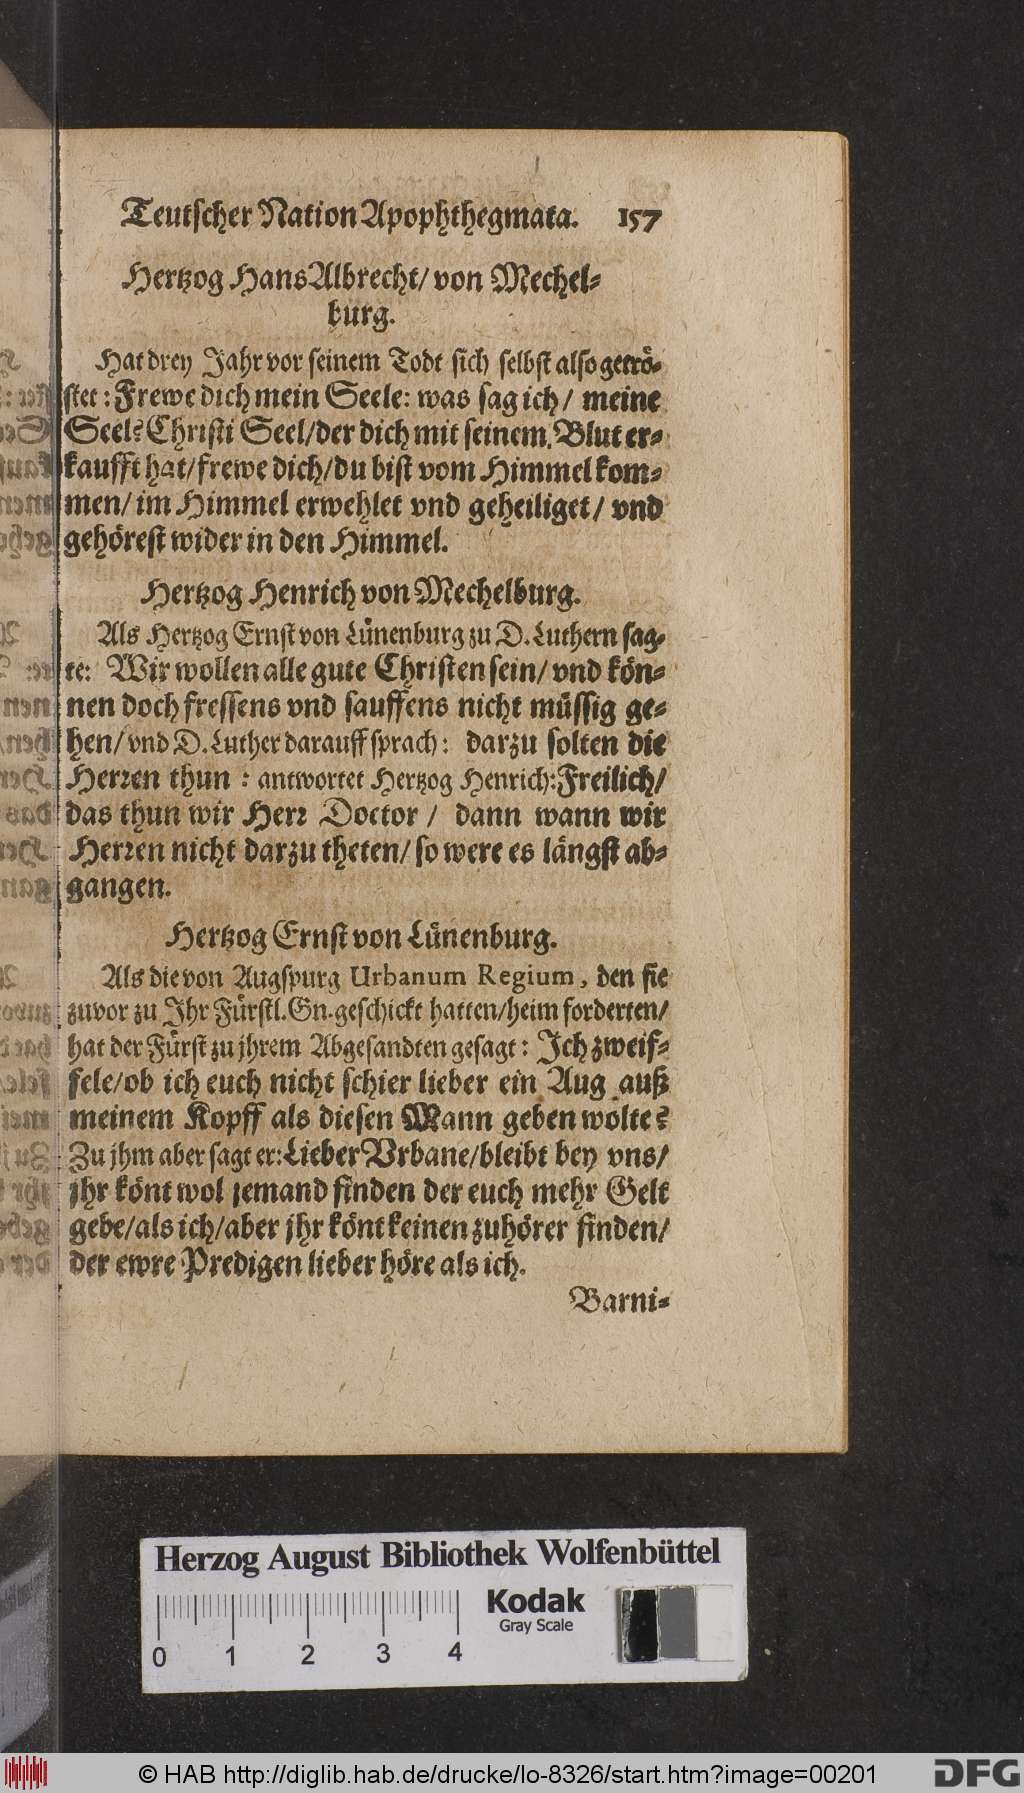 Teutscher Nation Apophthegmata. 157
Hertzog Hans Albrecht/ von Mechel-
burg.
Hat drey Jahr vor seinem Todt sich selbst also getrö-
stet: Frewe dich mein Seele: was sag ich/ meine
Seel? Christi Seel/ der dich mit seinem Blut er-
kaufft hat/ frewe dich/ du bist vom Himmel kom-
men/ im Himmel erwehlet vnd geheiliget/ vnd
gehörest wider in den Himmel.
Hertzog Henrich von Mechelburg.
Als Hertzog Ernst von Lünenburg zu D. Luthern sag-
te: Wir wollen alle gute Christen sein/ vnd kön-
nen doch fressens vnd sauffens nicht müssig ge-
hen/ vnd D. Luther darauff sprach: darzu solten die
Herren thun: antwortet Hertzog Henrich: Freilich/
das thun wir Herr Doctor/ dann wann wir
Herren nicht darzu theten/ so were es längst ab-
gangen.
Hertzog Ernst von Lünenburg.
Als die von Augspurg Urbanum Regium, den sie
zuvor zu Ihr Fürstl. Gn. geschickt hatten/ heim forderten/
hat der Fürst zu jhrem Abgesandten gesagt: Ich zweif-
fele/ ob ich euch nicht schier lieber ein Aug auß
meinem Kopff als diesen Mann geben wolte?
Zu jhm aber sagt er: Lieber Vrbane/ bleibt bey vns/
jhr könt wol jemand finden der euch mehr Gelt
gebe/ als ich/ aber jhr könt keinen zuhörer finden/
der ewre Predigen lieber höre als ich.
Barni-
Herzog August Bibliothek Wolfenbüttel
Kodak
Gray Scale
0 1 2 3 4
© HAB http://diglib.hab.de/drucke/lo-8326/start.htm?image=00201
DFG